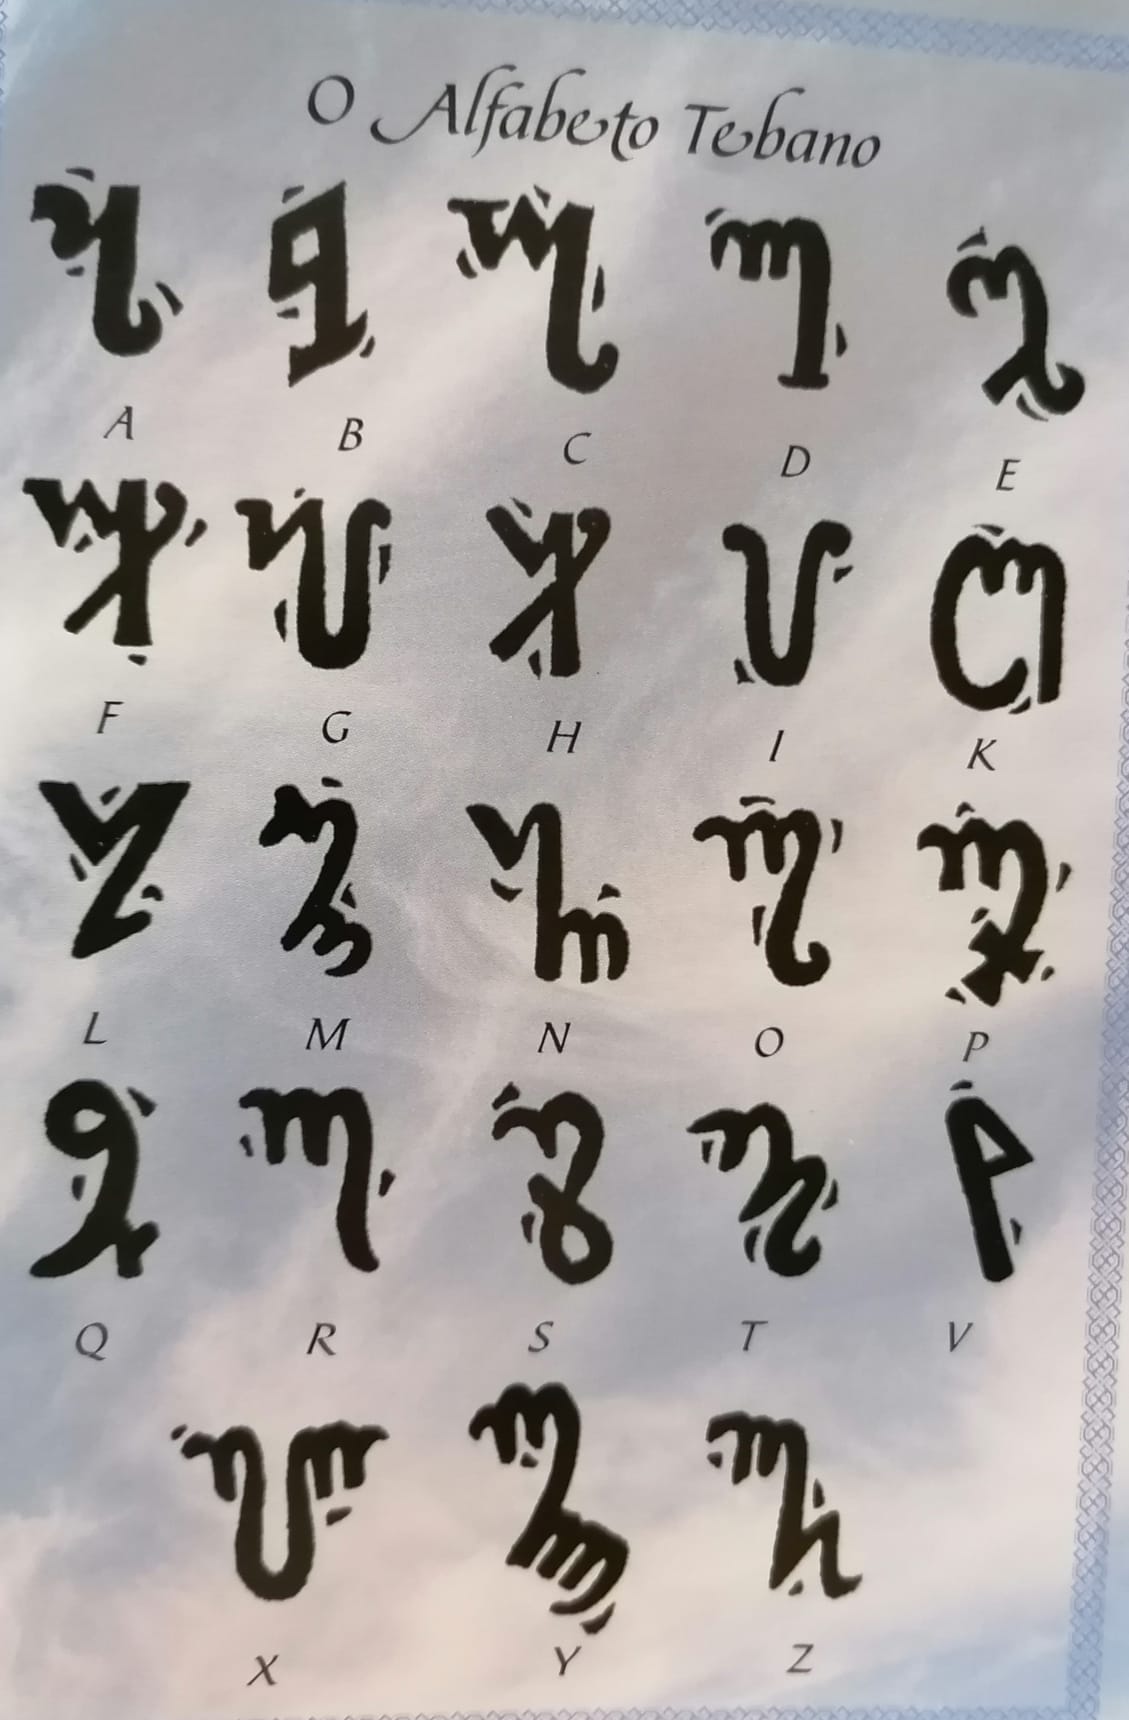 O Alfabeto Tebano
A B C D E
F G H I K
L M N O P
Q R S T V
X Y Z